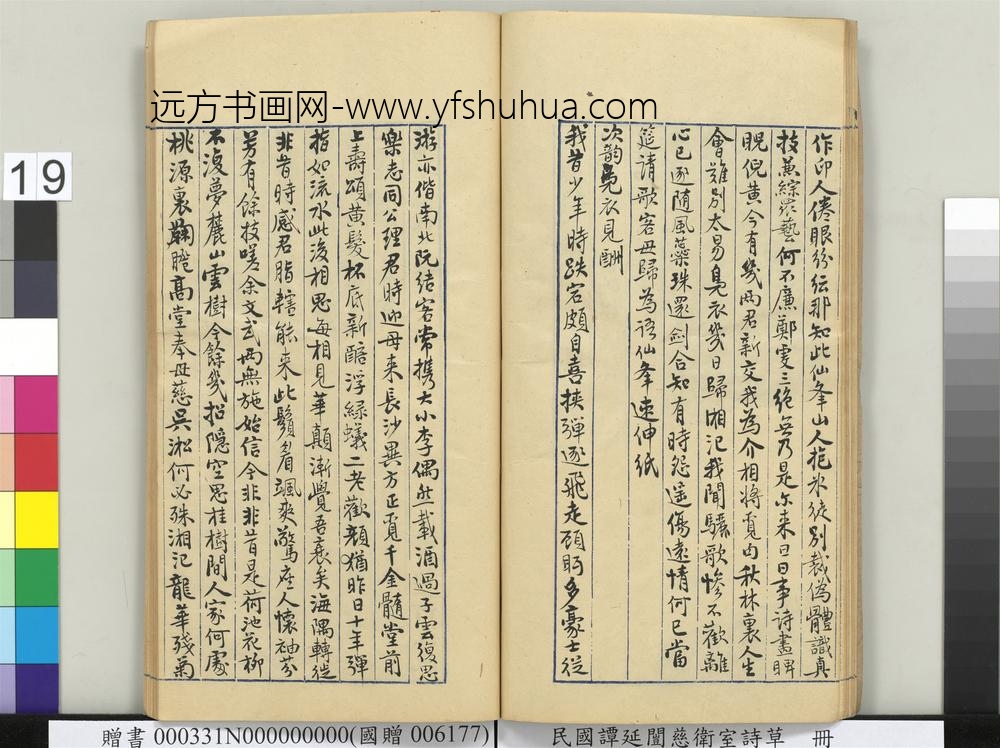 远方书画网-www.yfshuhua.com
作印人倦眼紛紜那知此仙峯山人抱冰徒別裁偽體識真
技兼綜眾藝何不廉鄭虔三絕無乃是尔来日日事诗畫睥
睨倪黃今有幾兩君新交我為介相將覓句秋林裏人生
會難別太易鳧衣幾日歸湘汜我聞驪歌惨不歡離
心已逐隨風藥珠還劍合知有時怨遥傷遠情何已當
筵請歌客毋歸為语仙峯速伸紙
次韵鳧衣見酬
我昔少年時跌宕頗自喜挟彈逐飛走顾眄多豪士從
游亦偕南北阮结客常携大小李偶然載酒過子雲復思
樂志同公理君時迎母来長沙異方正覓千金髓堂前
上壽頌黃髮杯底新醅浮緑蟻二老歡顏猶昨日十年彈
指如流水此後相思每相見華顛漸覺吾衰矣海隅轉徙
非昔時感君脂轄能来此鬚眉颯爽驚座人懷袖芬
芳有餘技嗟余文武兩無施始信今非非昔是荷池花柳
不復夢麓山雲樹今餘幾招隱空思桂樹間人家何處
桃源裏鞠䠆高堂奉母慈吳淞何必殊湘汜龍華殘菊
19
贈書 000331N000000000(國贈 006177)
民國譚延闓慈衛室詩草 冊